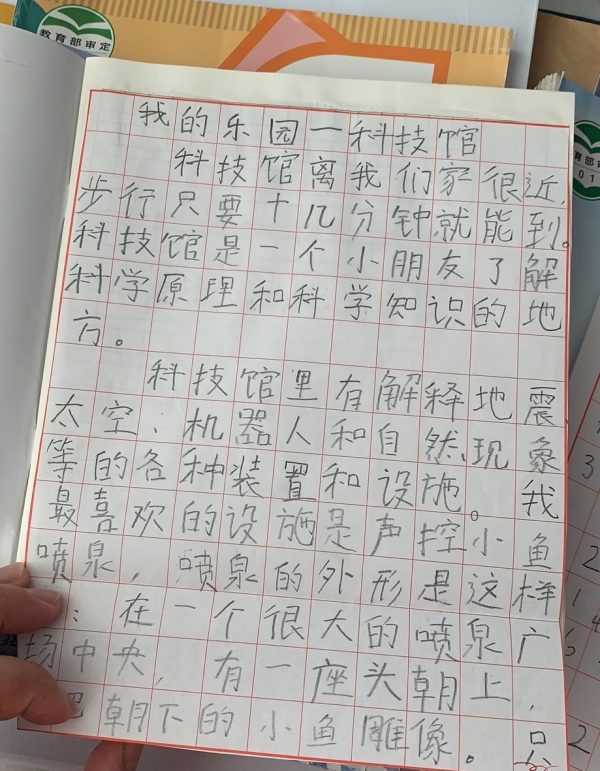 教育部审定
我的乐园一科技馆
科技馆离我们家很近,
步行只要十几分钟就能到。
科技馆是一个小朋友了解
科学原理和科学知识的地
方。
科技馆里有解释地震、
太空、机器人和自然现象
等的各种装置和设施。我
最喜欢的设施是声控小鱼
喷泉,喷泉的外形是这样
:在一个很大的喷泉广
场中央,有一座头朝上,
巴朝下的小鱼雕像。只
教育部审
01
3
2
1
4
6
2